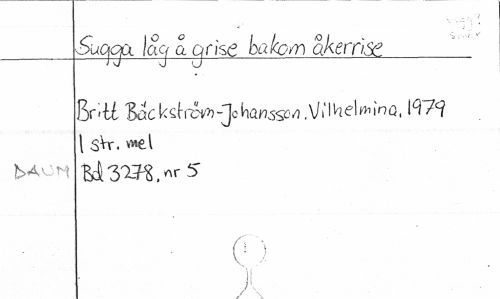 Sugga låg å grise bakom åkerrise
Britt Bäckström-Johansson. Vilhelmina. 1979
1 str. mel
DAUM Bd 3278, nr 5